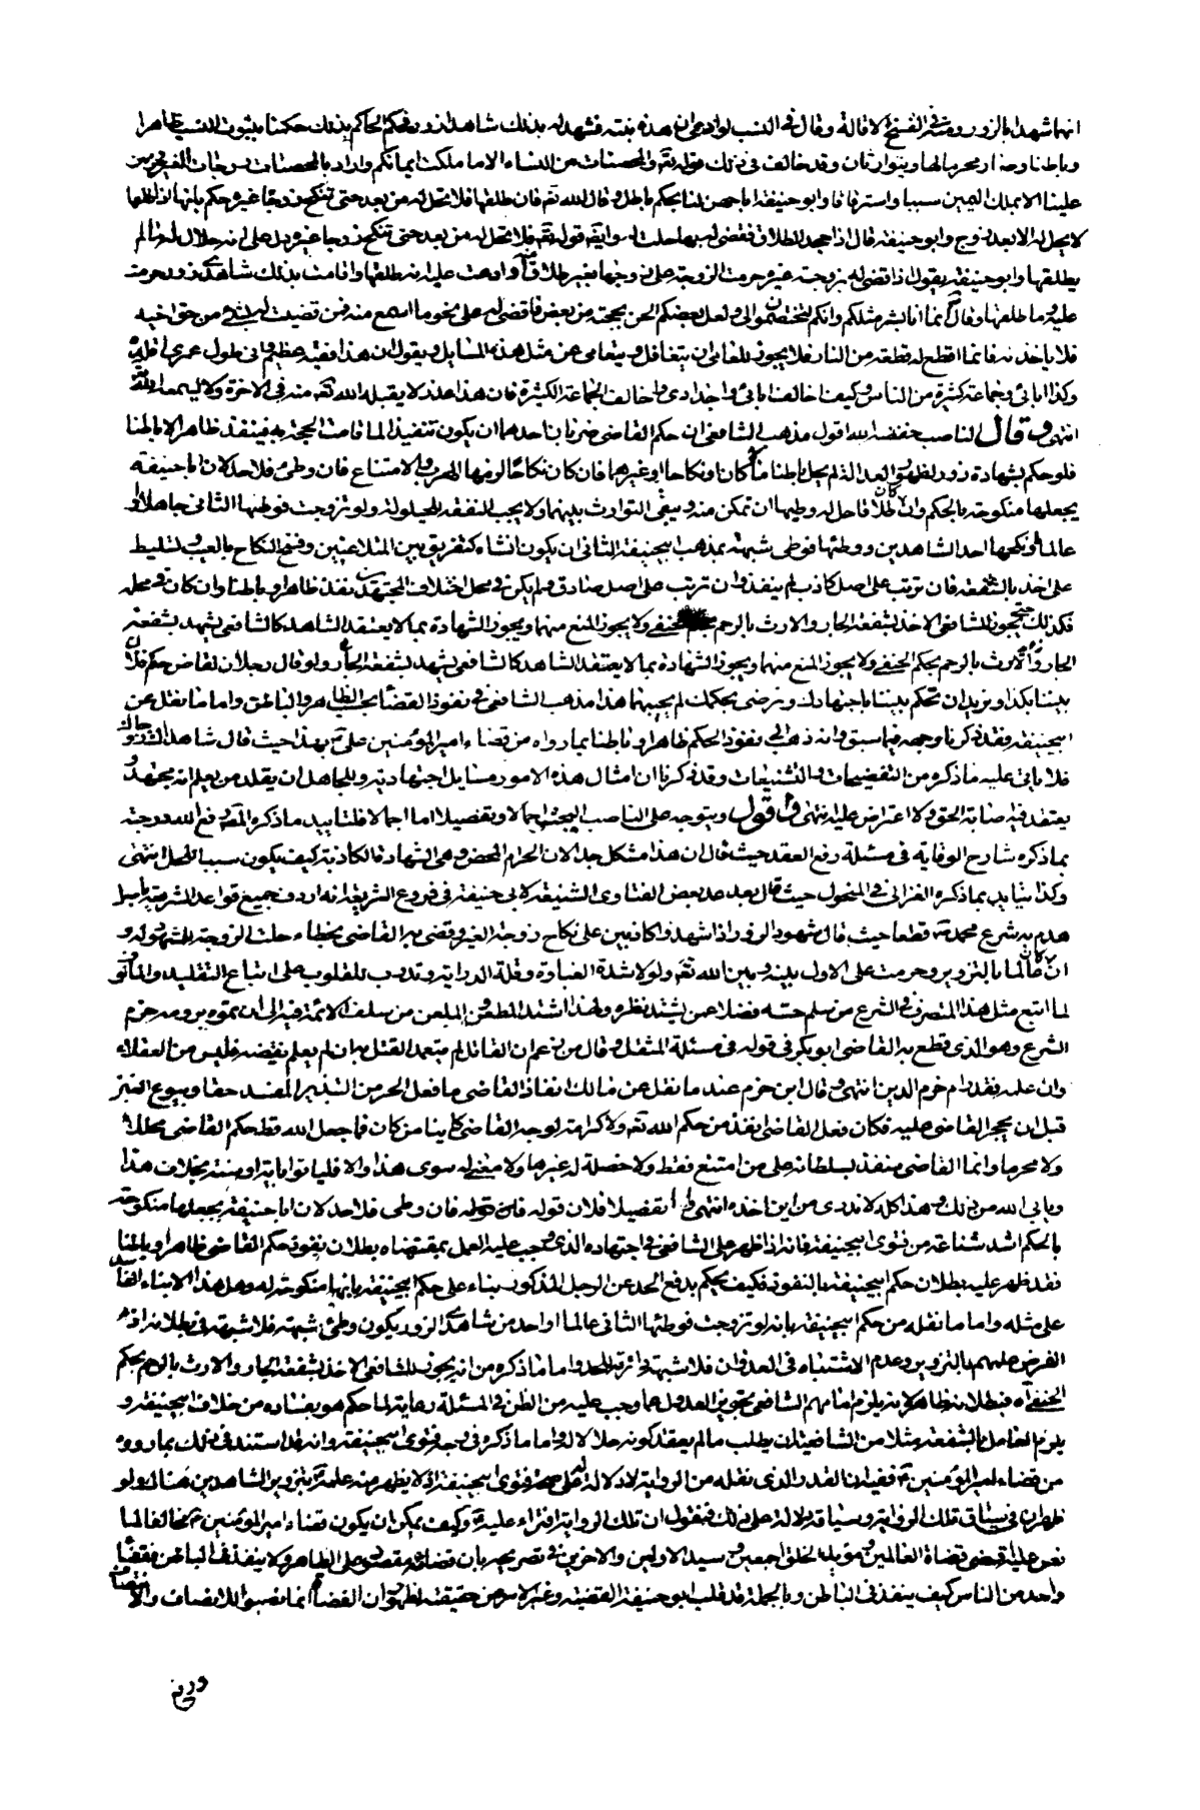 انهما شهدا بالزور وفي الفسخ الاقالة وقال في النسب لو ادعى ان هذه بنته فشهد له بذلك شاهدا زور فحكم الحاكم بذلك حكمنا بثبوت النسب ظاهرا
وباطنا وصار محرما لها ويتوارثان وقد خالف في ذلك قوله تعالى والمحصنات من النساء الا ما ملكت ايمانكم واراد بالمحصنات زوجات الغير حرمن
علينا الا بملك اليمين سببا واسترقاقا وابو حنيفة اباحهن لنا بحكم باطل وقال الله تعالى فان طلقها فلا تحل له من بعد حتى تنكح زوجا غيره حكم بانها اذا طلقها
لا يحل له الا بعد زوج وابو حنيفة قال اذا جحد الطلاق فقضى له بها حلت له وايضا قوله تعالى فلا تحل له من بعد حتى تنكح زوجا غيره يدل على انه حلال له ما لم
يطلقها وابو حنيفة يقول اذا قضى له بزوجة غيره حرمت الزوجة على زوجها بغير طلاق منه او ادعت عليه انه طلقها واقامت بذلك شاهدي زور حرمت
عليه وما طلقها وقال انما انا بشر مثلكم وانكم تختصمون الي ولعل بعضكم الحن بحجته من بعض فاقضي له على نحو ما اسمع منه فمن قضيت له بشيء من حق اخيه
فلا ياخذنه فانما اقطع له قطعة من النار فلا يجوز للعامي ان يتغافل ويتعامى عن مثل هذه المسايل ويقول ان هذا فقيه عظيم واني طول عمري اقلده
وكذا ابائي وجماعة كثيرة من الناس وكيف اخالف ابائي واجدادي واخالف الجماعة الكثيرة فان هذا عذر لا يقبله الله تعالى منه في الاخرة ولا
انتهى وقال الناصب خفضه الله اقول مذهب الشافعي ان حكم القاضي ضربان احدهما ان يكون تنفيذ لما قامت الحجة به فينفذ ظاهرا لا باطنا
فلو حكم بشهادة زور لظهور العدالة لم يحل باطنا مالا كان او نكاحا او غيرهما فان كان نكاحا لزمها الهرب والامتناع فان وطئ فلا حد لان ابا حنيفة
يجعلها منكوحة بالحكم وان كان طلاقا حل له وطيها ان تمكن منه ويبقى التوارث بينهما ولا يجب النفقة للحيلولة ولو تزوجت فوطئها الثاني جاهلا او
عالما او نكحها احد الشاهدين ووطئها فوطي شبهة بمذهب ابي حنيفة الثاني ان يكون انشاء كتفريق بين المتلاعنين وفسخ النكاح بالعيب وتسليط
على اخذ بالشفعة فان ترتب على اصل كاذب لم ينفذ وان ترتب على اصل صادق ولم يكن في محل اختلاف المجتهدين نفذ ظاهرا وباطنا وان كان في محله
فكذلك حتى يجوز للشافعي الاخذ بشفعة الجار والارث بالرحم بحكم الحنفي ولا يجوز المنع منهما ويجوز الشهادة بما لا يعتقد الشاهد كالشافعي يشهد بشفعة
الجار والارث بالرحم بحكم الحنفي ولا يجوز المنع منهما ويجوز الشهادة بما لا يعتقد الشاهد كالشافعي يشهد بشفعة الجار ولو قال رجلان لقاض حكم فلان
بيننا بكذا ونريد ان تحكم بيننا باجتهادك ونرضى بحكمك لم يجبهما هذا مذهب الشافعي في نفوذ القضاء بحسب الظاهر والباطن واما ما نقل عن
ابي حنيفة فقد ذكرنا وجهه فيما سبق وانه ذهب الى نفوذ الحكم ظاهرا وباطنا بما رواه من قضاء امير المؤمنين علي بهذا حيث قال شاهداك زوجاك
فلا باقي عليه ما ذكره من التفضيحات والتشنيعات وقد ذكرنا ان امثال هذه الامور مسايل اجتهادية وللجاهل ان يقلد من يعلم انه مجتهد و
يعتقد فيه صابة الحق ولا اعتراض عليه انتهى واقول ويتوجه على الناصب البحث اجمالا وتفصيلا اما اجمالا فلتاييد ما ذكره المصنف رفع الله درجته
بما ذكره شارح الوقاية في مسئلة رفع العقد حيث قال ان هذا مشكل جدا لان الحرام المحض وهي الشهادة الكاذبة كيف يكون سببا للحل انتهى
وكذا يتايد بما ذكره الغزالي في المنخول حيث قال بعد عد بعض الفتاوى الشنيعة لابي حنيفة في فروع الشريعة انه اردف جميع قواعد الشريعة باصل
هدم به شرع محمد قطعا حيث قال شهود الزور اذا شهدوا كاذبين على نكاح زوجة الغير وقضى به القاضي مخطئا حلت الزوجة للمشهود له و
ان كان عالما بالتزوير وحرمت على الاول بينه وبين الله تعالى ولولا شدة الغباوة وقلة الدراية وتدرب للقلوب على اتباع التقليد والمالوف
لما اتبع مثل هذا المتصرف في الشرع من سلم حسه فضلا عمن يشتد نظره ولهذا اشتد المطعن والملعن من سلف الائمة فيه الى ان اتهموه برومه خرم
الشرع وهو الذي قطع به القاضي ابو بكر في قوله في مسئلة المثقل وقال من زعم ان القاتل لم يتعمد القتل به ان لم يعلم نقيضه فليس من العقلاء
وان علمه فقد رام خرم الدين انتهى وقال ابن حزم عند ما نقل عن مالك انفاذ القاضي ما فعل الحر من التبذير المفسد حقا وبيوع الغبن
قبل ان يحجر القاضي عليه فكان فعل القاضي انفذ من حكم الله تعالى ولا كرامة لوجه القاضي كاينا من كان فما جعل الله قط حكم القاضي محللا
ولا محرما وانما القاضي منفذ بسلطانه على من امتنع فقط ولا خصلة له غيرها ولا معنى له سوى هذا والا فلياتوا باية او سنة بخلاف هذا
ويابى الله من ذلك وهذا كله لا ندري من اين اخذه انتهى واما تفصيلا فلان قوله فان وطي فلا حد لان ابا حنيفة يجعلها منكوحة
بالحكم اشد شناعة من فتوى ابي حنيفة فانه اذا ظهر على الشافعي في اجتهاده الذي وجب عليه العمل بمقتضاه بطلان نفوذ حكم القاضي ظاهرا وباطنا
فقد ظهر عليه بطلان حكم ابي حنيفة بالنفوذ فكيف يحكم بدفع الحد عن الرجل المذكور بناء على حكم ابي حنيفة بانها منكوحته له وهل هذا الا بناء الفاسد
على مثله واما ما نقله من حكم ابي حنيفة بانه لو تزوجت فوطئها الثاني عالما او احد من شاهدي الزور يكون وطئ شبهة فلا شبهة في بطلانه اذ
الفرض علمهم بالتزوير وعدم الاشتباه في العدوان فلا شبهة دارئة للحد واما ما ذكره من انه يجوز للشافعي الاخذ بشفعة الجار والارث بالرحم بحكم
الحنفي اه فبطلانه ظاهر لانه يلزم امامهم الشافعي تجويز العدول عما وجب عليه من الظن في المسئلة رعاية لما حكم هو بفساده من خلاف ابي حنيفة و
يلزم العامل بالشفعة مثلا من الشافعية ان يطلب ما لم يعتقد كونه حلالا له واما ما ذكره في وجه فتوى ابي حنيفة وانه قد استند في ذلك بما رووه
من قضاء امير المؤمنين ففيه ان القدر الذي نقله من الرواية لا دلالة له على صحة فتوى ابي حنيفة اذ لا يظهر منه علمه بتزوير الشاهدين هناك ولو
ظهر في سياق تلك الرواية وسياقه دلالة على ذلك فنقول ان تلك الرواية افتراء عليه وكيف يمكن ان يكون قضاء امير المؤمنين مخالفا لما
نص عليه اقضى قضاة العالمين ومؤيد الخلق اجمعين وسيد الاولين والاخرين في تصريحه بان قضائه مقصور على الظاهر ولا ينفذ في الباطن فقضاء
واحد من الناس كيف ينفذ في الباطن وبالجملة قد قلب ابو حنيفة القضية وغير الامر عن حقيقته لظهور ان القضاة انما نصبوا للانصاف والانتصاف